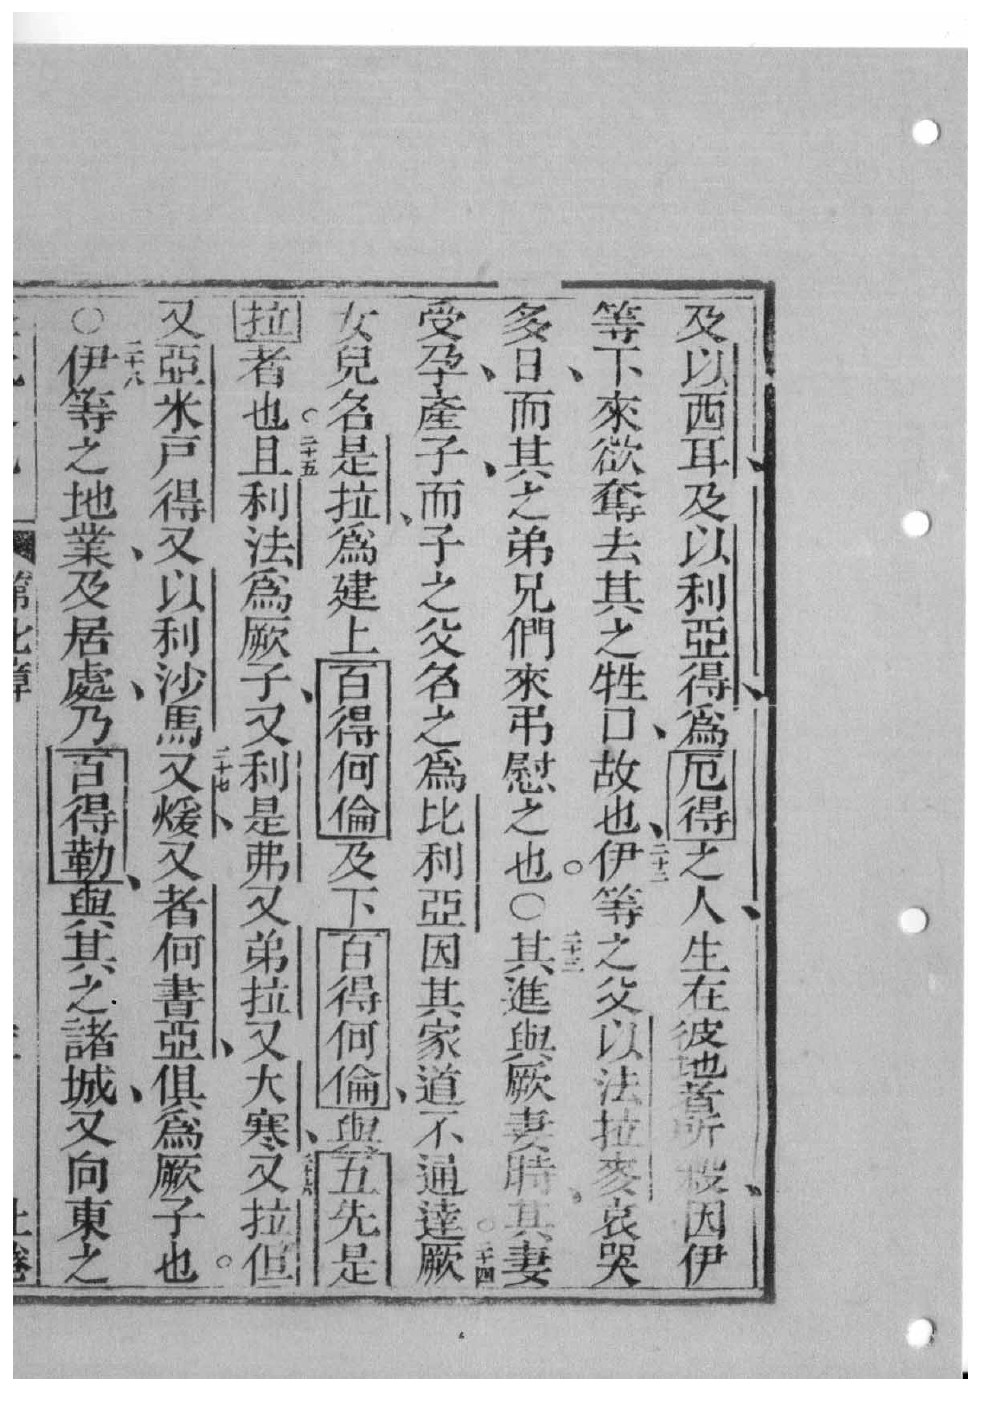 及以西耳及以利亞得爲厄得之人生在彼地者所殺因伊
等下來欲奪去其之牲口故也二十二伊等之父以法拉麥哀哭
多日而其之弟兄們來弔慰之也。○二十三其進與厥妻時其妻
受孕產子而子之父名之爲比利亞因其家道不通達厥。二十四
女兒名是拉爲建上百得何倫及下百得何倫與五先是
拉者也。二十五且利法爲厥子又利是弗又弟拉又大寒二十六又拉但
又亞米戶得又以利沙馬二十七又煖又者何書亞俱爲厥子也。
○二十八伊等之地業及居處乃百得勒與其之諸城又向東之
第七章
上卷